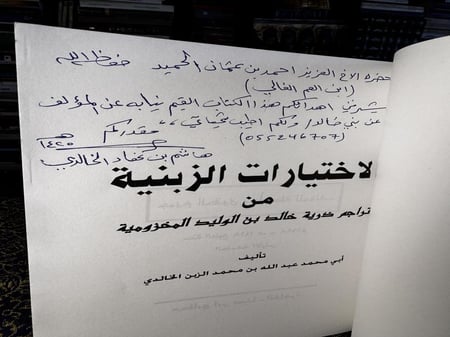 حضرة الأخ العزيز احمد بن عثمان الحميد حفظه الله
(ابن العم الغالي)
يشرفني اهدائكم هذا الكتاب القيم نيابه عن المؤلف
عن بني خالد / ولكم اطيب تحياتي ،،
(055246707) مقدمكم
هاشم بن الخالدي
١٤٢٥هـ
الاختيارات الزبنية
من
تراجم ذرية خالد بن الوليد المخزومية
تأليف
أبي محمد عبد الله بن محمد الزبن الخالدي